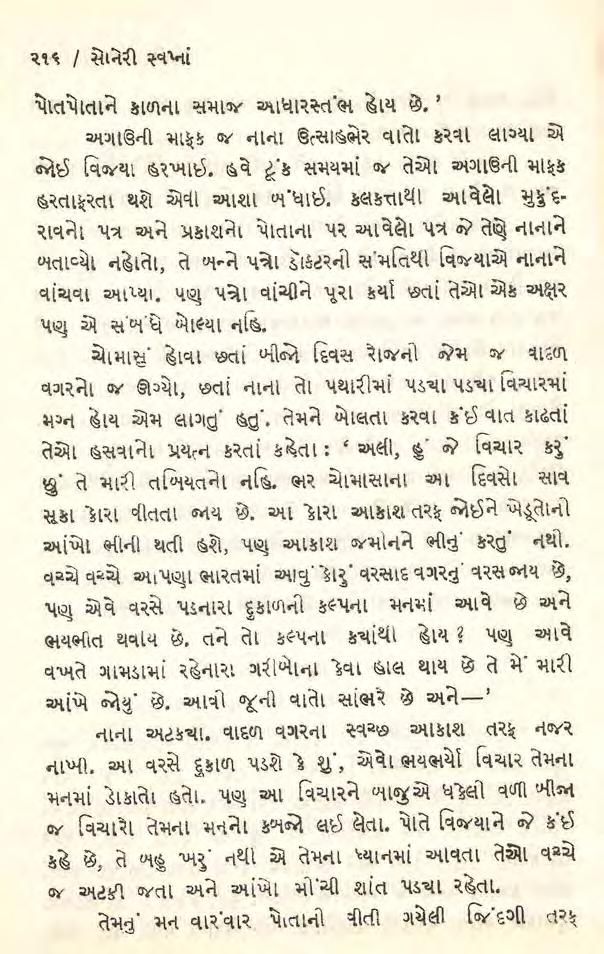 ૨૧૬ / સોનેરી સ્વપ્નાં
પોતપોતાને કાળના સમાજ આધારસ્તંભ હોય છે.’
અગાઉની માફક જ નાના ઉત્સાહભેર વાતો કરવા લાગ્યા એ
જોઈ વિજયા હરખાઈ. હવે ટૂંક સમયમાં જ તેઓ અગાઉની માફક
હરતાફરતા થશે એવી આશા બંધાઈ. કલકત્તાથી આવેલો મુકુંદ-
રાવનો પત્ર અને પ્રકાશનો પોતાના પર આવેલો પત્ર જે તેણે નાનાને
બતાવ્યો નહોતો, તે બન્ને પત્રો ડૉક્ટરની સંમતિથી વિજયાએ નાનાને
વાંચવા આપ્યા. પણ પત્રો વાંચીને પૂરા કર્યા છતાં તેઓ એક અક્ષર
પણ એ સંબંધે બોલ્યા નહિ.
ચોમાસું હોવા છતાં બીજો દિવસ રોજની જેમ જ વાદળ
વગરનો જ ઊગ્યો, છતાં નાના તો પથારીમાં પડ્યા પડ્યા વિચારમાં
મગ્ન હોય એમ લાગતું હતું. તેમને બોલતા કરવા કંઈ વાત કાઢતાં
તેઓ હસવાનો પ્રયત્ન કરતાં કહેતા : ‘ અલી, હું જે વિચાર કરું
છું તે મારી તબિયતનો નહિ. ભર ચોમાસાના આ દિવસો સાવ
સૂકા કોરા વીતતા જાય છે. આ કોરા આકાશ તરફ જોઈને ખેડૂતોની
આંખો ભીની થતી હશે, પણ આકાશ જમીનને ભીનું કરતું નથી.
વચ્ચે વચ્ચે આપણા ભારતમાં આવું કોરું વરસાદ વગરનું વરસ જાય છે,
પણ એવે વરસે પડનારા દુકાળની કલ્પના મનમાં આવે છે અને
ભયભીત થવાય છે. તને તો કલ્પના ક્યાંથી હોય ? પણ આવે
વખતે ગામડામાં રહેનારા ગરીબોના કેવા હાલ થાય છે તે મેં મારી
આંખે જોયું છે. આવી જૂની વાતો સાંભરે છે અને—’
નાના અટક્યા. વાદળ વગરના સ્વચ્છ આકાશ તરફ નજર
નાખી. આ વરસે દુકાળ પડશે કે શું, એવો ભયભર્યો વિચાર તેમના
મનમાં ડોકાતો હતો. પણ આ વિચારને બાજુએ ધકેલી વળી બીજા
જ વિચારો તેમના મનનો કબજો લઈ લેતા. પોતે વિજયાને જે કંઈ
કહે છે, તે બહુ ખરું નથી એ તેમના ધ્યાનમાં આવતા તેઓ વચ્ચે
જ અટકી જતા અને આંખો મીંચી શાંત પડ્યા રહેતા.
તેમનું મન વારંવાર પોતાની વીતી ગયેલી જિંદગી તરફ